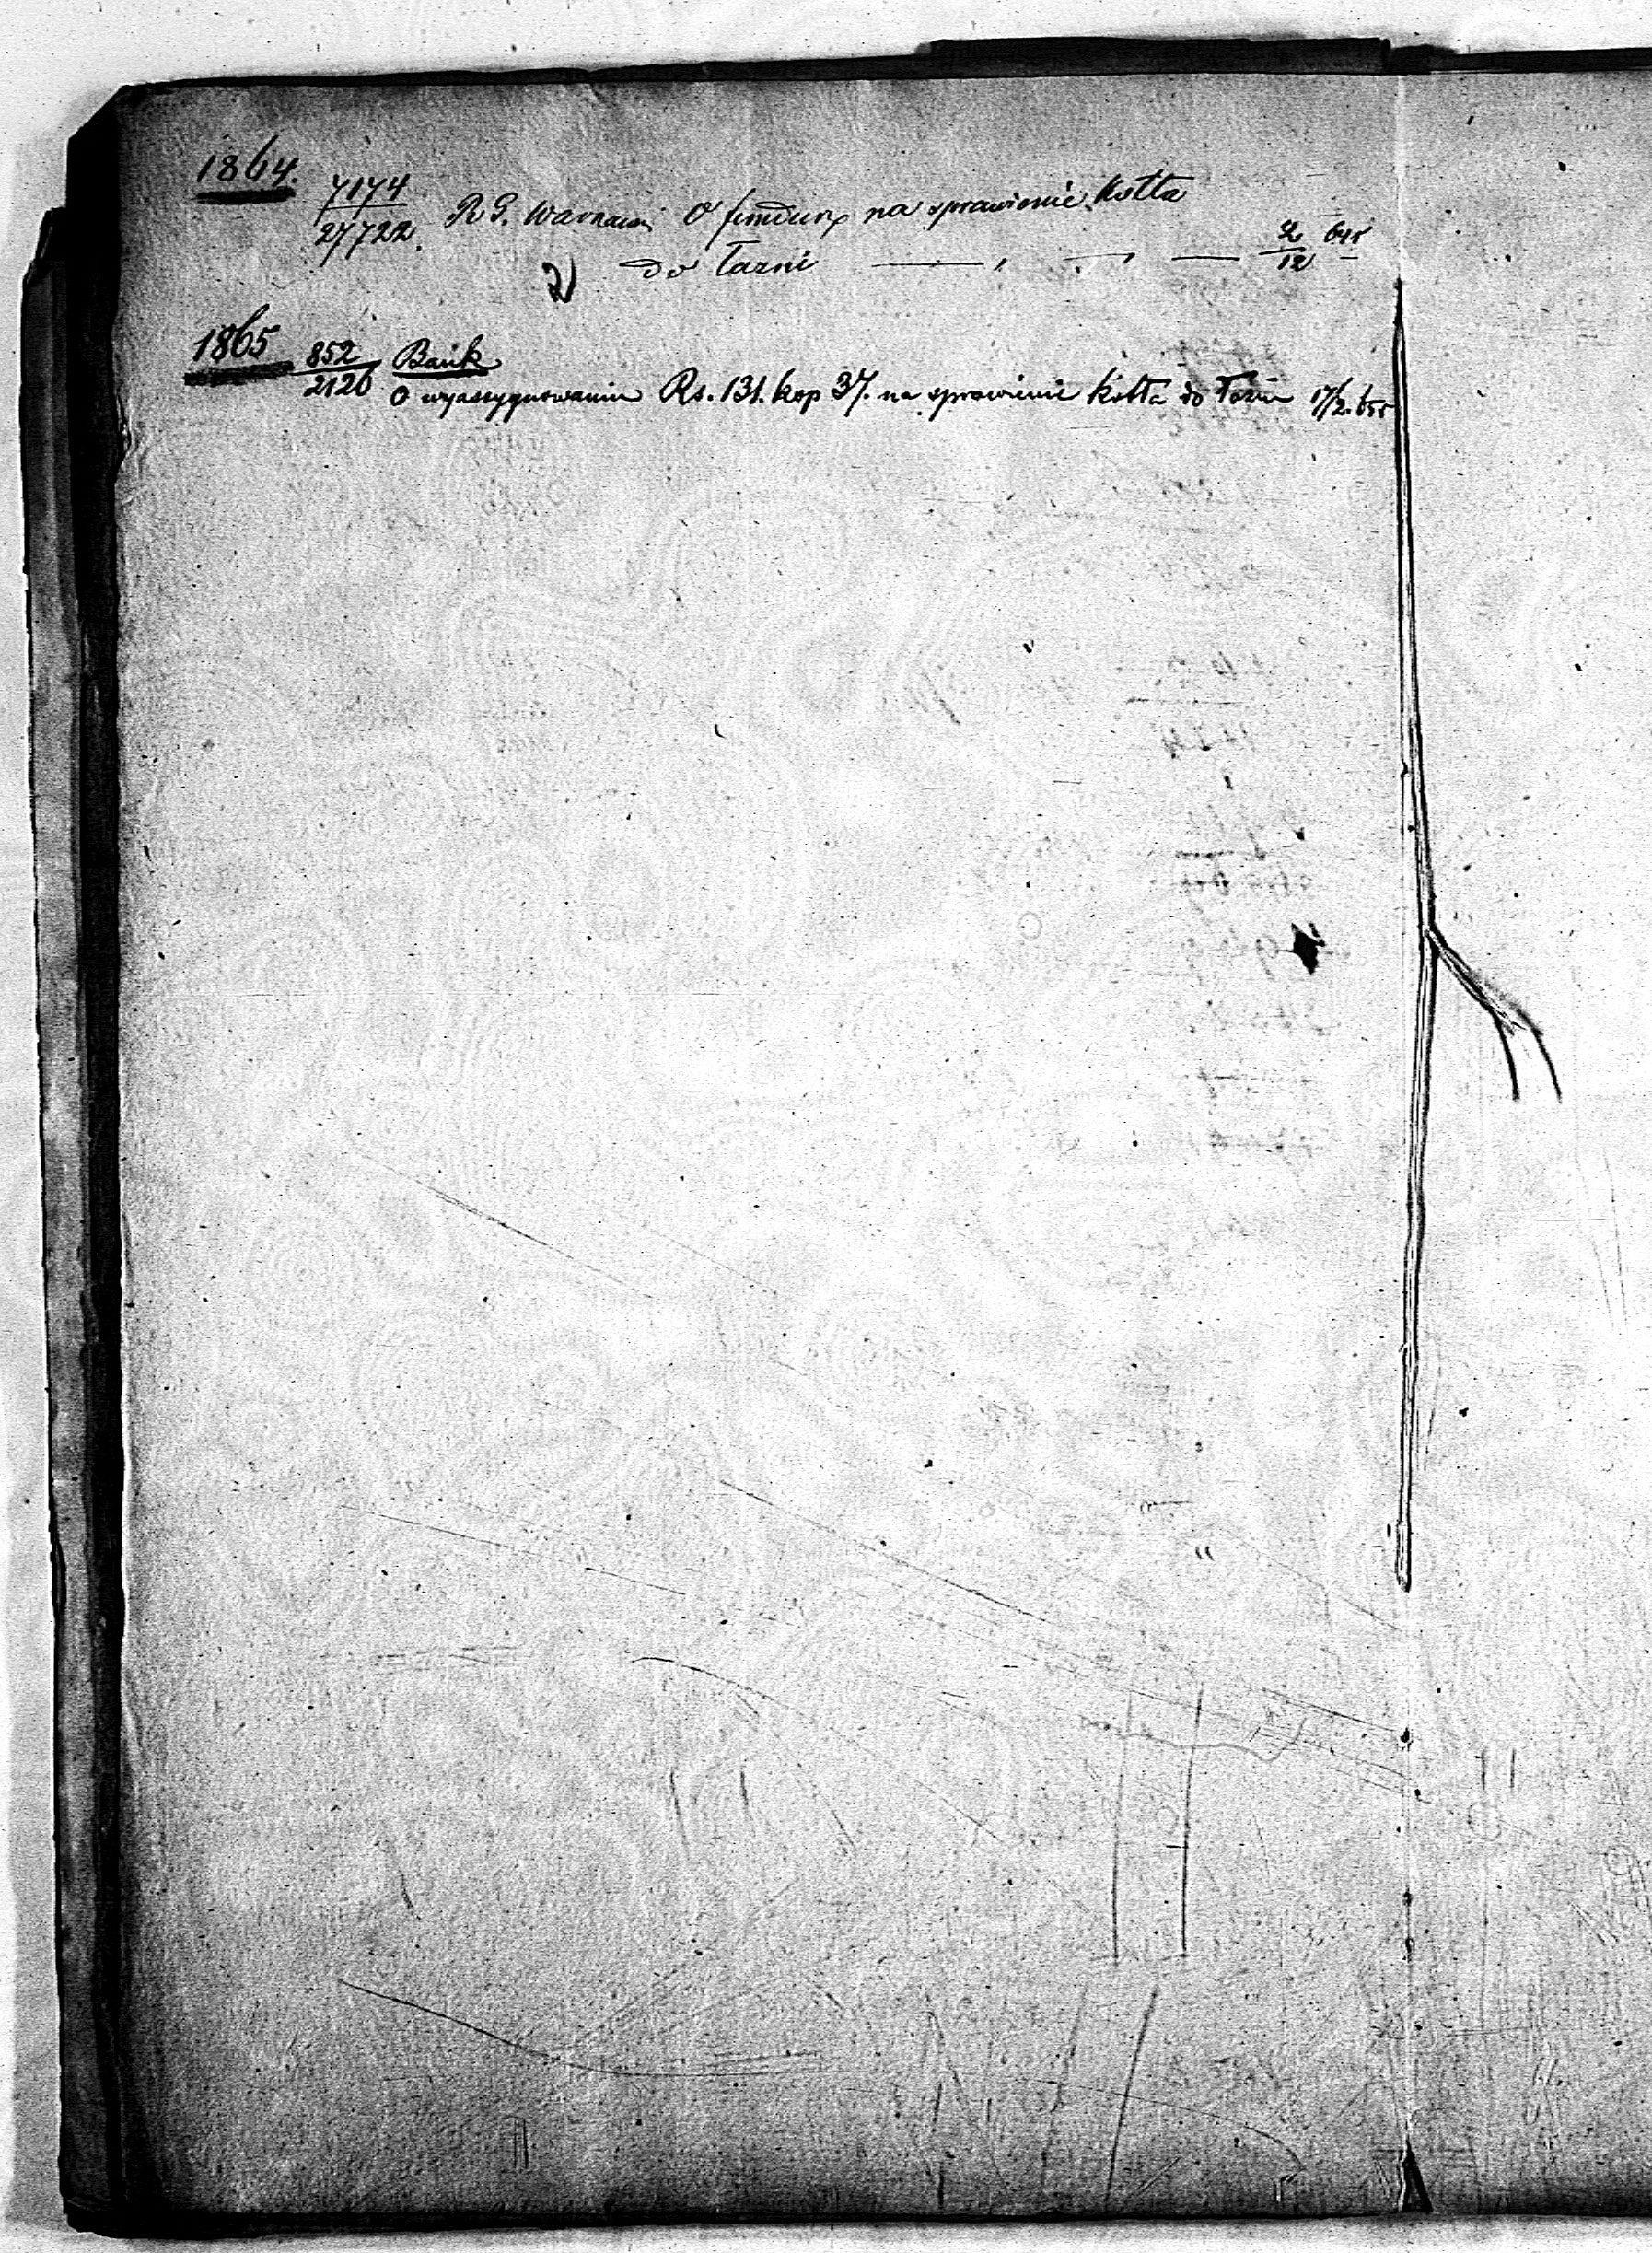 1864.
7174
27722. R G. Warszaws O fundusz na sprawienie Kotła
do Łazni — „ — „ — 2/12 64r
1865 852 Bank
2126 O wyassygnowanie Rs. 131. kop 37. na sprawienie kotła do Łazni 17/2. 65r